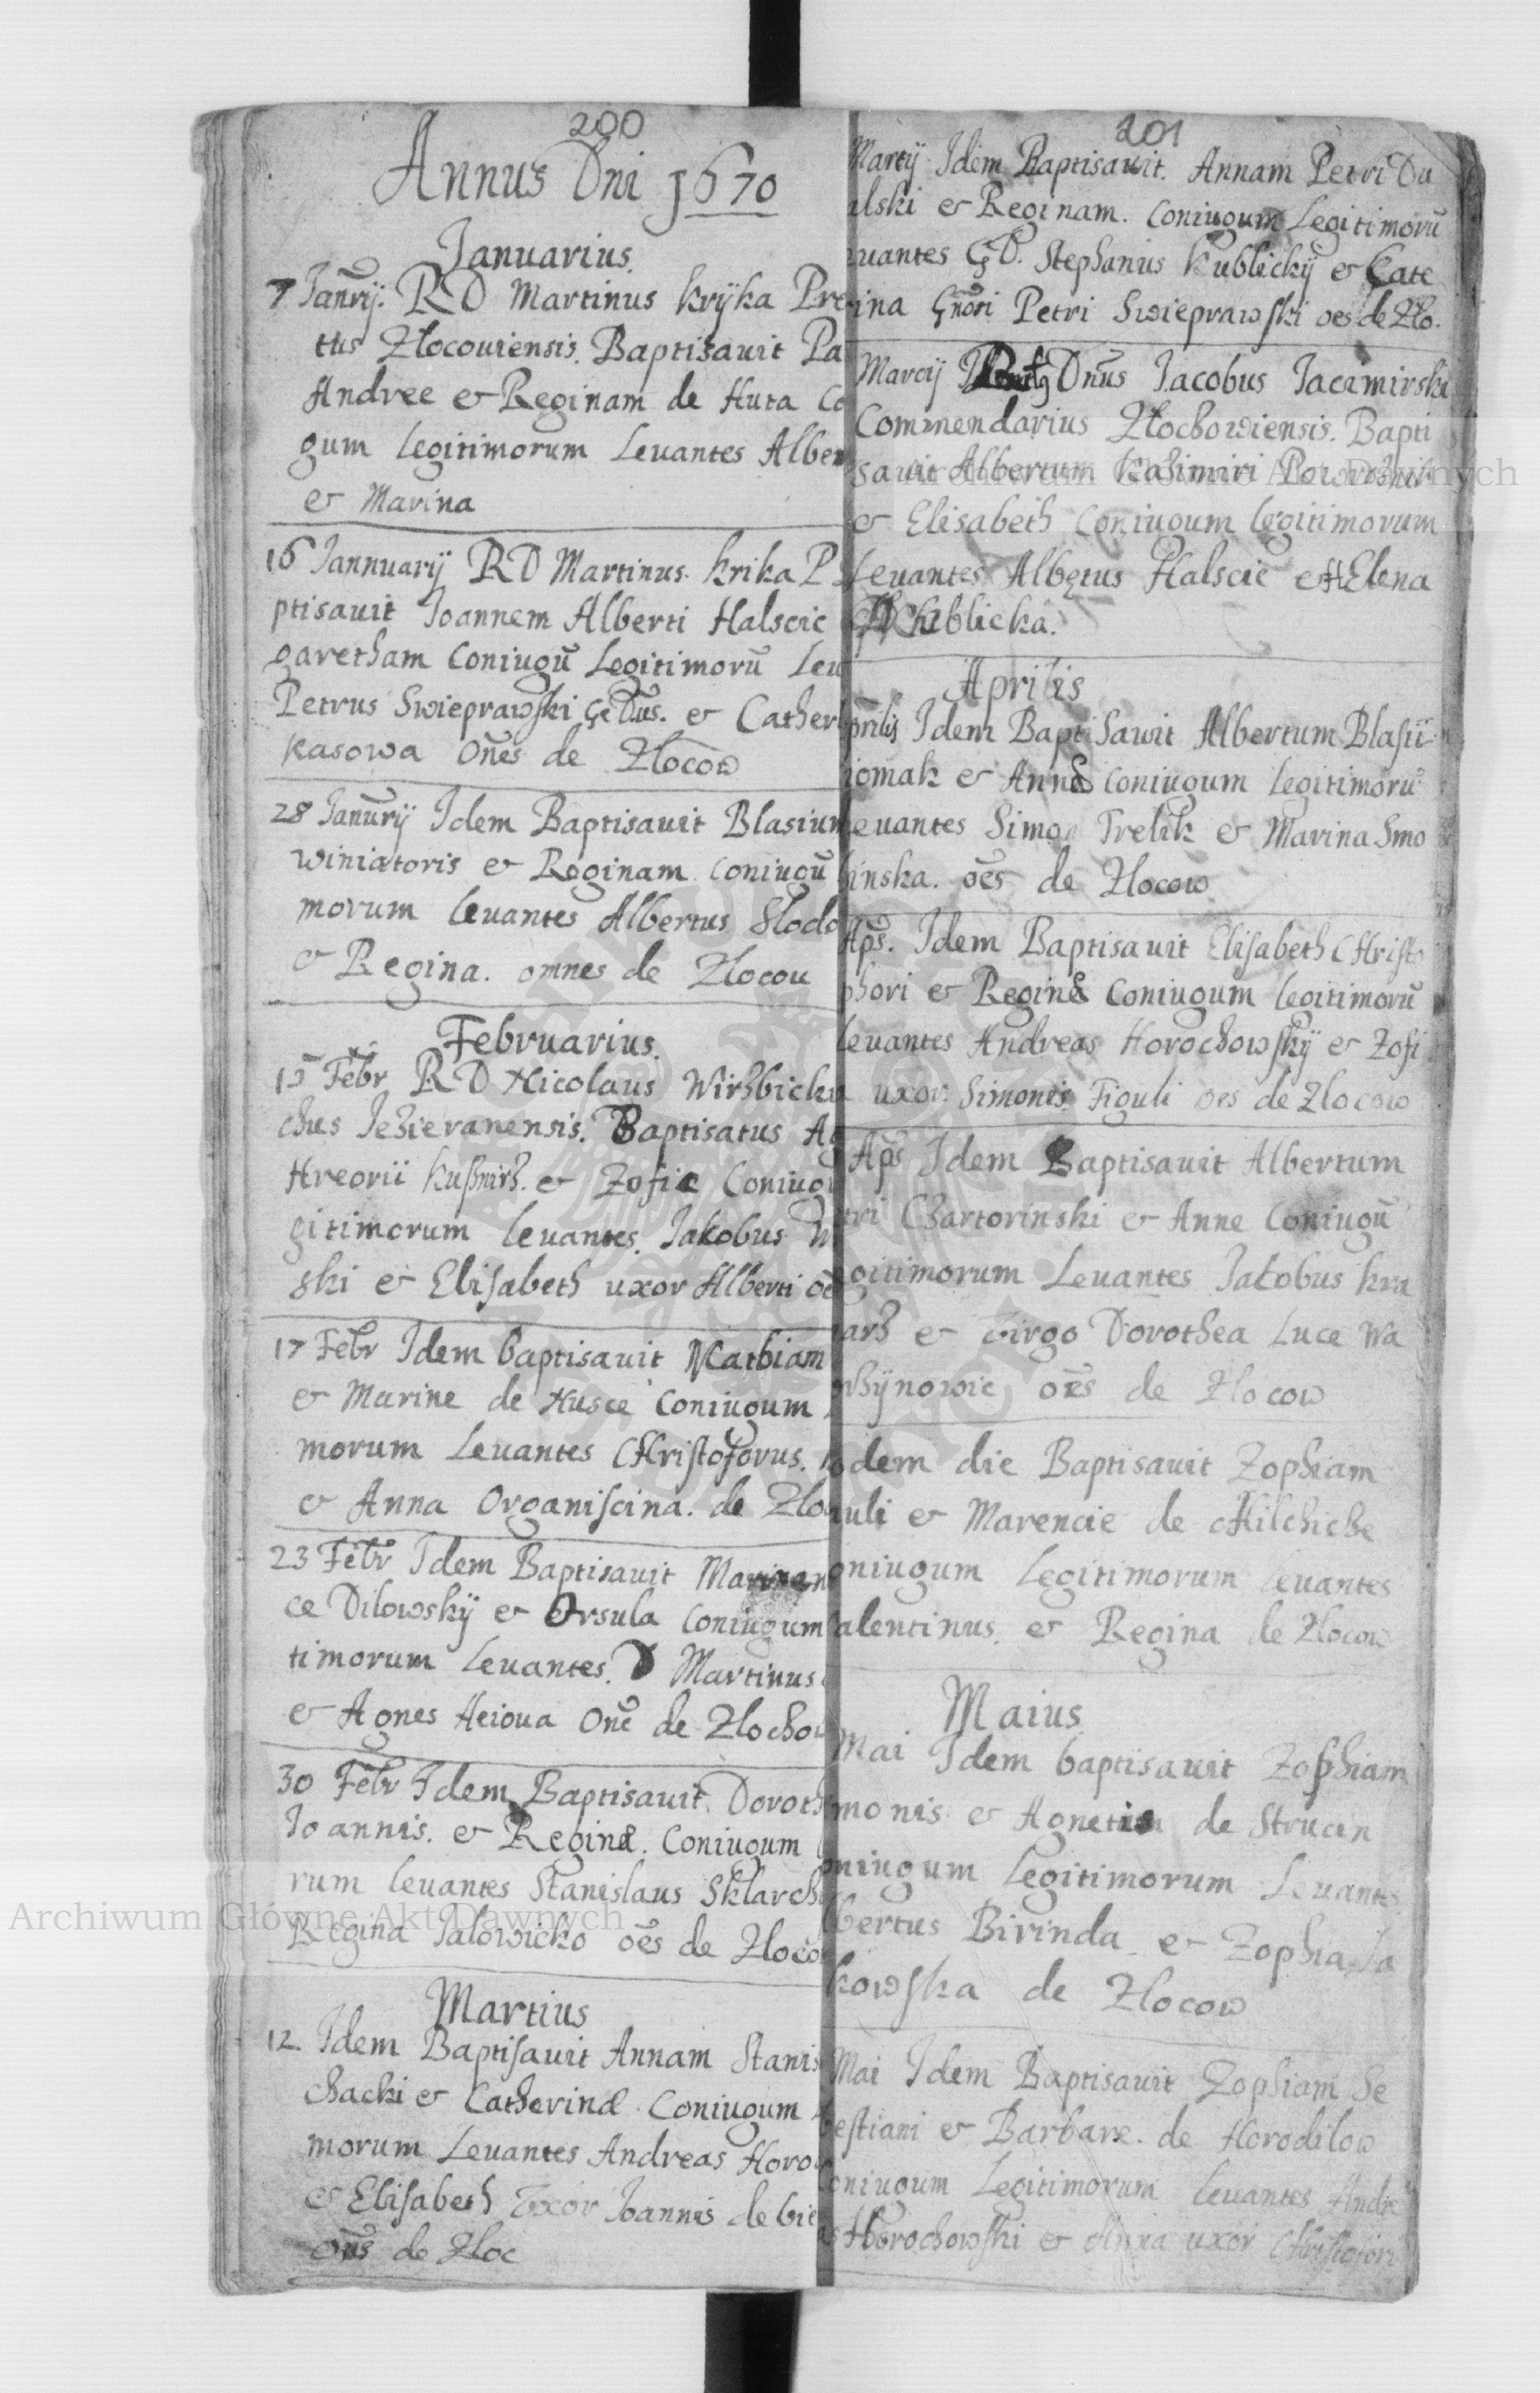 200
Annus Dni 1670
Januarius.
7 Janrij. RD Martinus Kryka Pre
tus Zlocouiensis. Baptisauit Pa
Andree et Reginam de Huta Co
gum Legitimorum Leuantes Alber
et Marina
16 Jannuarij RD Martinus Krika P
ptisauit Joannem Alberti Halscic
garetham Coniugū Legitimorū Leu
Petrus Swieprawski et Cather
kasowa Oñes de Zlocow
28 Janurij Idem Baptisauit Blasium
winiatoris et Reginam coniugū
morum leuantes Albertus Slodo
et Regina. omnes de Zlocou
Februarius.
15 Febr RD Nicolaus Wirzbicku
chus Jezieranensis. Baptisatus Ag
Hreorii Kußnirz. et Zofie Coniug
gitimorum leuantes. Jakobus W
ski et Elisabeth uxor Alberti oē
17 Febr Idem baptisauit Mathiam
et Marine de Husce Coniugum
morum Leuantes CHristoforus.
et Anna Organiscina. de Zlo
23 Febr Idem Baptisauit Marinam
ce Dilowskÿ et Orsula Coniugum
timorum Leuantes. D Martinus
et Agnes Heioua Onē de Zlochow
30 Febr Idem Baptisauit Doroth
Joannis. et Reginæ. Coniugum
rum leuantes Stanislaus Sklarch
Regina Jalowicko oēs de Zloco
Martius
12 Idem Baptisauit Annam Stanis
chacki et Catherinæ Coniugum
morum Leuantes Andreas Horo
et Elisabeth Uxor Joannis de bie
oñs de Zloc
201
Martij Idem Baptisauit. Annam Petri Du
alski et Reginam. Coniugum Legitimorū
uantes GD. Stephanus Kublickÿ et Cate
ina Gnōsi Petri Swieprawski oes de Zlo.
Marcij Dnūs Jacobus Jacimirski
Commendarius Zlochowiensis. Bapti
sauit Albertum Kazimiri
et Elisabeth Coniugum legitimorum
Leuantes Albertus Halscic et HElena
Kublicka.
Aprilis
prilis Idem Baptisawit Albertum Blasii
iomak et Annæ Coniugum legitimorū
leuantes Simon Trelik et Marina Smo
linska. oēs de Zlocow
Aps. Idem Baptisauit Elisabeth CHristo
phori et Reginæ Coniugum legitimorū
leuantes Andreas Horochowskÿ et Zofi
uxor Simonis Figuli oes de Zlocow
Aps Idem Baptisauit Albertum
tri Czartorinski et Anne Coniugū
gitimorum Leuantes Jakobus kra
arz et Virgo Dorothea Luce Wa
wzÿnowic oēs de Zlocow
odem die Baptisauit Zophiam
auli et Marencie de CHilchicze
oniugum Legitimorum leuantes
alentinus. et Regina de Zlocow
Maius
Mai Idem baptisauit Zophiam
monis et Agnetis de Strucin
oniugum Legitimorum Leuantes
lbertus Birinda et Zophia Ja
kowska de Zlocow
Mai Idem Baptisauit Zophiam Se
bestiani et Barbare. de Horodilow
oniugum Legitimorum leuantes Andre
as Horochowski et Anna uxor Christofori
Archiwum Główne Akt Dawnych
Archiwum Główne Akt Dawnych